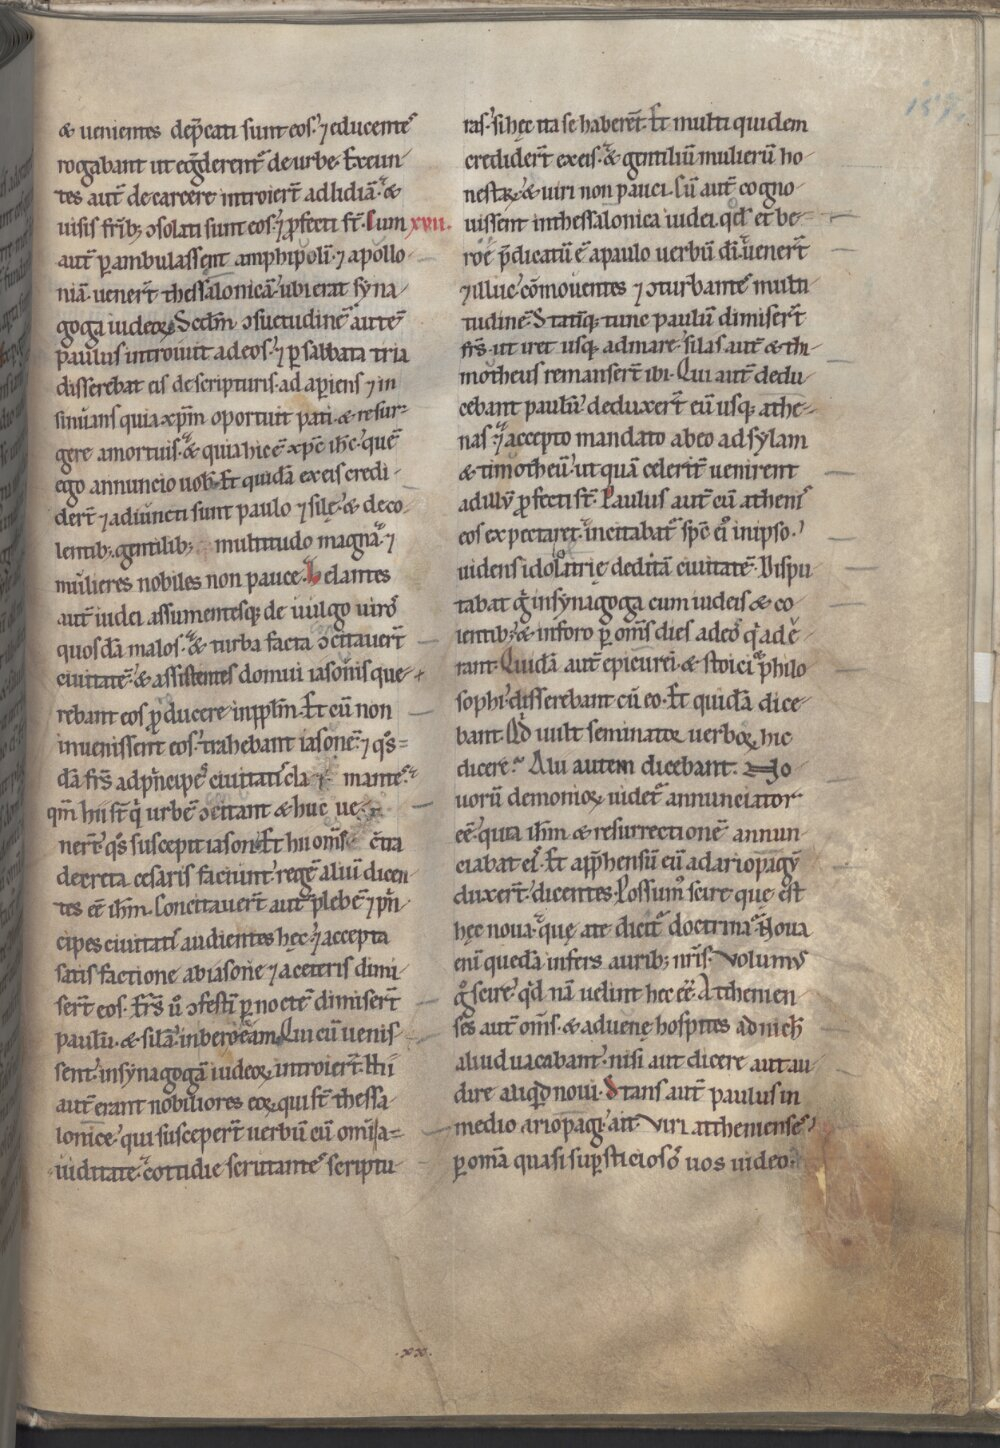 & uenientes dep̄cati sunt eos.' ⁊ educentes
rogabant ut eḡderent̄ de urbe. Exeun-
tes aut̄ de carcere introiert̄ ad lidiā.' &
uisis fr̄ib; ↄsolati sunt eos.' ⁊ p̱fecti st̄. Cum xvii.
aut̄ ꝑambulassent amphipolī. ⁊ apollo-
niā. uenert̄ thessalonicā.' ubi erat syna-
goga iudeoꝝ. Scdm̄ ↄsuetudinē autē
paulus introiuit ad eos.' ⁊ ꝑ sabbata tria
disserebat eis de scripturis. adaperiens ⁊ in
sinuans quia xp̄m oportuit pati. & resur-
gere a mortuis.' & quia hic ē xp̄c ih̄c.' quē
ego annuncio uob̄. Et quidā ex eis credi-
dert̄ ⁊ adiuncti sunt paulo ⁊ silę.' & de co-
lentib; gentilib; multitudo magna.' ⁊
mulieres nobiles non pauce. Zelantes
aut̄ iudei assumentesq; de uulgo uiros
quosdā malos.' & turba facta ↄcitauert̄
ciuitatē.' & assistentes domui iasonis que-
rebant eos ꝓducere in pp̄lm̄. Et cū non
inuenissent eos.' trahebant iasonē.' ⁊ q̄s=
dā fr̄s ad p̄ncipes ciuitatis cla mantes.'
qm̄ hii st̄ qi urbē ↄcitant & huc ue-
nert̄.' qos suscepit iason. Et hii om̄s c̄tra
decreta cesaris faciunt.' regē aliū dicen
tes eē ih̄m. Concitauert̄ aut̄ plebē.' ⁊ p̄n
cipes ciuitatis audientes hęc.' ⁊ accepta
satisfactione ab iasone ⁊ a ceteris dimi-
sert̄ eos. Fr̄s uo ↄfestī ꝑ noctē dimisert̄
paulū. & silā.' in beroeam. Qui cū uenis-
sent.' in synagogā iudeoꝝ introiert̄. Hi
aut̄ erant nobiliores eoꝝ qui st̄ thessa-
lonice.' qui suscepert̄ uerbū cū omī a=
uiditate.' cottidie scrutantes scriptu-
ras.' si hęc ita se haberēt. Et multi quidem
credidert̄ ex eis.' & gentiliū mulierū ho-
nestaꝝ.' & uiri non pauci. Cū aut̄ cogno-
uissent in thessalonica iudei. qđ et be-
roę p̄dicatū ē a paulo uerbū dī.' uenert̄
⁊ illuc cōmouentes ⁊ ↄturbantes multi
tudinē. Statīq; tunc paulum dimisert̄
fr̄s.' ut iret usq; ad mare. silas aut̄ & thi-
motheus remansert̄ ibi. Qui aut̄ dedu-
cebant paulū.' deduxert̄ eū usq; athe-
nas.' ⁊ accepto mandato ab eo ad sylam
& timotheū.' ut quā celerit̄ uenirent
ad illū ꝓfecti st̄. Paulus aut̄ cū athenis
eos expectaret.' incitabat̄ sp̄c ei in ipso.'
uidens idolatrię deditā ciuitatē. Dispu
tabat ḡ in synagoga cum iudeis & co-
lentib;.' & in foro ꝑ om̄s dies ad eos q̇ adē
rant. Quidā aut̄ epicurei.' & stoici philo
sophi.' disserebant cū eo. Et quidā dice
bant. Qd uult seminatoꝝ uerboꝝ hic
dicere. Alii autem dicebant. No
uorū demonioꝝ uidet̄ annunciator
eē.' quia ih̄m & resurrectionē annun
ciabat eis. Et app̄hensū eū ad ariopagū
duxert̄.' dicentes. Possumus scire que est
hęc noua.' quę a te dicit̄ doctrina. Noua
enī quedā infers aurib; nr̄is. Volumus
go scire.' qd nā uelint hec eē. Athenien
ses aut̄ om̄s. & aduenę hospites ad nich̄
aliud uacabant.' nisi aut dicere aut au-
dire aliqd noui. Stans aut̄ paulus in
medio ariopagi.' ait. Viri athenienses.'
ꝑ omā quasi suꝑsticiosos uos uideo.
.xx.